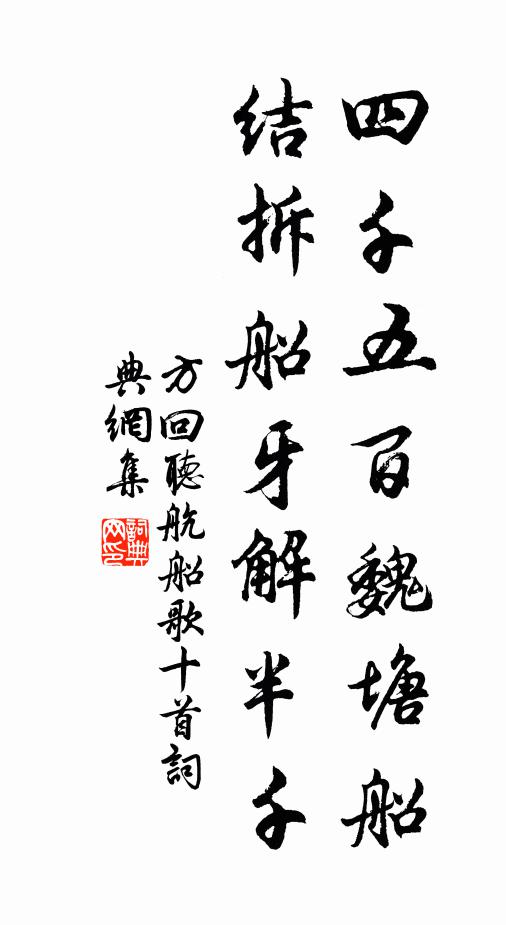 四千五百魏塘船
結拆船牙解半千
方回聽航船歌十首詞
典網集
詞典網印